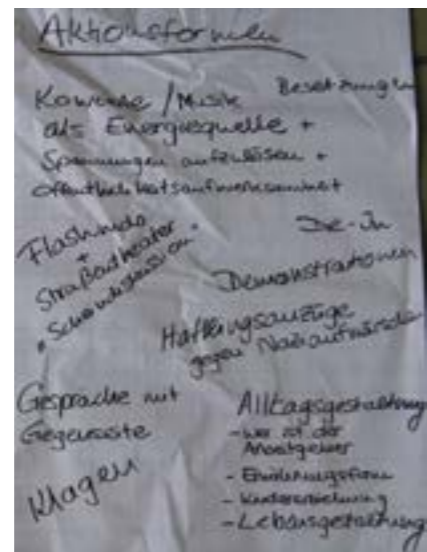 Aktionsformen
Besetzungen
Konzerte / Musik
als Energiequelle +
Spannungen aufzulösen +
Öffentlichkeitsaufmerksamkeit
Flashmobs
+
Straßentheater
Die-In
Demonstrationen
Häftlingsanzüge
gegen Naziaufmärsche
Gespräche mit
Gegenseite
Klagen
Alltagsgestaltung
- wer ist der
Arbeitgeber
- Ernährungsform
- Kindererziehung
- Lebensgestaltung